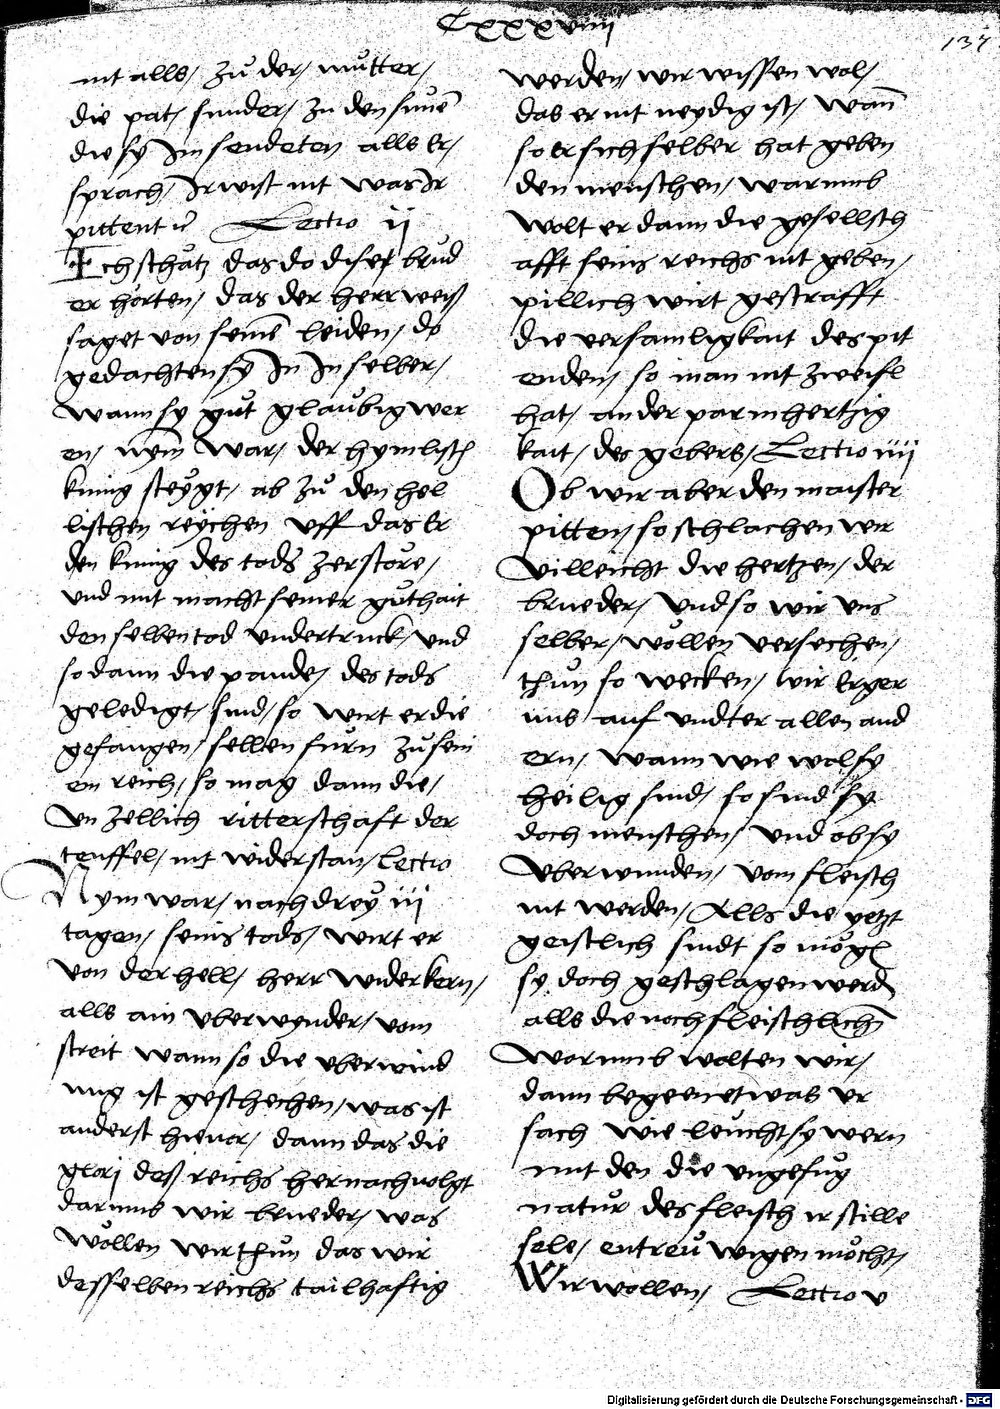 Cxxxviiij
137
nit alls/ zů der/ můtter/
die pat/ sunder/ zu den sünē
die sy Im sendeten alls Er/
sprach/ Ir wist nit was Ir
pittent ꝛc Lectio ij
Ich schätz das do diser brud
er horten/ das der herr weiß
saget von seinē leiden/ do
gedachten sy In In selber/
wann sy gůt glaůbig wer
en/ nym war/ der hymlisch
kunig steygt/ ab zů den hel
lischen reÿchen uff das Er
den kunig des tods zerstöre/
und mit macht seiner gůthait
den selben tod undertruck/ und
so dann die pande/ des tods
geledigt/ sind/ so wirt er die
gefangen/ sellen furn zů sein
em reich/ so mag dann die/
Un zellich ritterschaft der
teuffel/ nit widerstan/ Lectio
Nym war/ nach dreÿ iij
tagen/ seins tods/ wirt er
von der hell/ herr widerkern/
alls ain uberwynder/ vom
streit wann so die uberwind
ung ist geschechen/ was ist
anderst hieuor/ dann das die
glorj deß reichs hernach volgt
darumb wir brueder/ was
wöllen wir thůn das wir
desselben reichs tailhaftig
werden/ wir wissen wol/
das er nit neydig ist/ wañ
so er sich selber hat geben
den menschen/ warumb
wolt er dann die gesellsch
afft seins reichs nit geben/
pillich wirt gestrafft
die versamligkait des pit
enden/ so man nit zweifl
hat/ an der parmhertzig
kait/ des gebers/ Lectio iiij
Ob wir aber den maister
pitten/ so schlachen wir
villeicht die hertzen/ der
brueder/ und so wir uns
selber/ wöllen versechen/
thůn so wecken/ wir Erger
nus auf undter allen and
ern/ wann wie wol sy
heilig sind/ so sind sy
doch menschen/ und ob sy
uberwunden/ vom fleisch
nit werden/ Alls die yetzt
geistlich sindt so mög
sy doch geschlagen werd
alls die noch fleischlich
Warumb wolten wir/
dann begern etwas ur
sach wie leucht sy wern
mit den die ungefůg
natůr des fleisch ir stille
sele/ entreu wigen möcht/
Wir wollen/ Lectio v
Digitalisierung gefördert durch die Deutsche Forschungsgemeinschaft - DFG